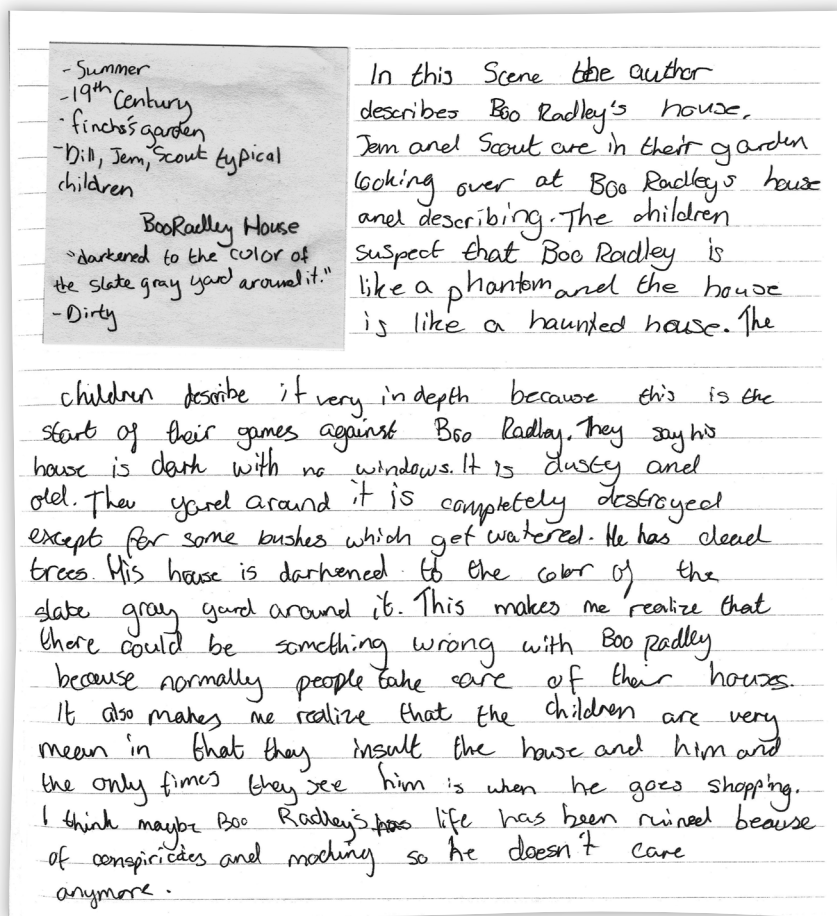 - Summer
- 19th Century
- finchs's garden
- Dill, Jem, Scout typical
children
Boo Radley House
"darkened to the color of
the slate gray yard around it."
- Dirty
In this Scene the author
describes Boo Radley's house.
Jem and Scout are in their garden
looking over at Boo Radleys house
and describing. The children
suspect that Boo Radley is
like a phantom and the house
is like a haunted house. The
children describe it very in depth because this is the
start of their games against Boo Radley. They say his
house is dark with no windows. It is dusty and
old. The yard around it is completely destroyed
except for some bushes which get watered. He has dead
trees. His house is darkened to the color of the
slate gray yard around it. This makes me realize that
there could be something wrong with Boo Radley
because normally people take care of their houses.
It also makes me realize that the children are very
mean in that they insult the house and him and
the only times they see him is when he goes shopping.
I think maybe Boo Radley's life has been ruined because
of conspiricies and mocking so he doesn't care
anymore.